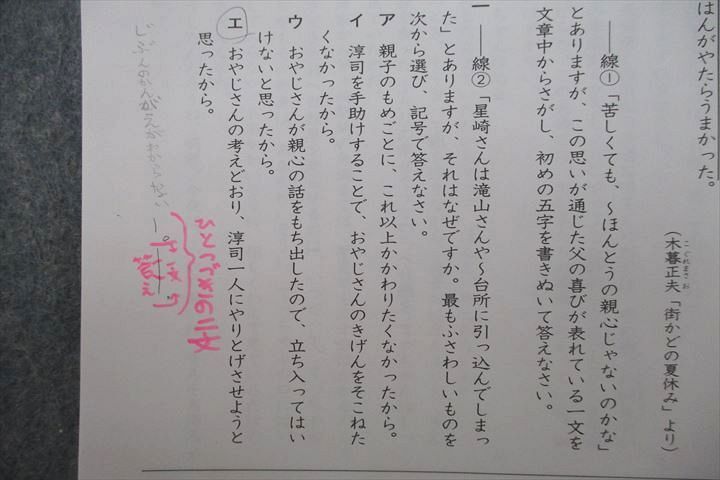 はんがやたらうまかった。
（木暮正夫「街かどの夏休み」より）
こぐれまさお
――線①「苦しくても、～ほんとうの親心じゃないのかな」
とありますが、この思いが通じた父の喜びが表れている一文を
文章中からさがし、初めの五字を書きぬいて答えなさい。
――線②「星崎さんは滝山さんや～台所に引っ込んでしまっ
た」とありますが、それはなぜですか。最もふさわしいものを
次から選び、記号で答えなさい。
ア 親子のもめごとに、これ以上かかわりたくなかったから。
イ 淳司を手助けすることで、おやじさんのきげんをそこねた
くなかったから。
ウ おやじさんが親心の話をもち出したので、立ち入ってはい
けないと思ったから。
エ おやじさんの考えどおり、淳司一人にやりとげさせようと
思ったから。
ひとつづきの二文
答え